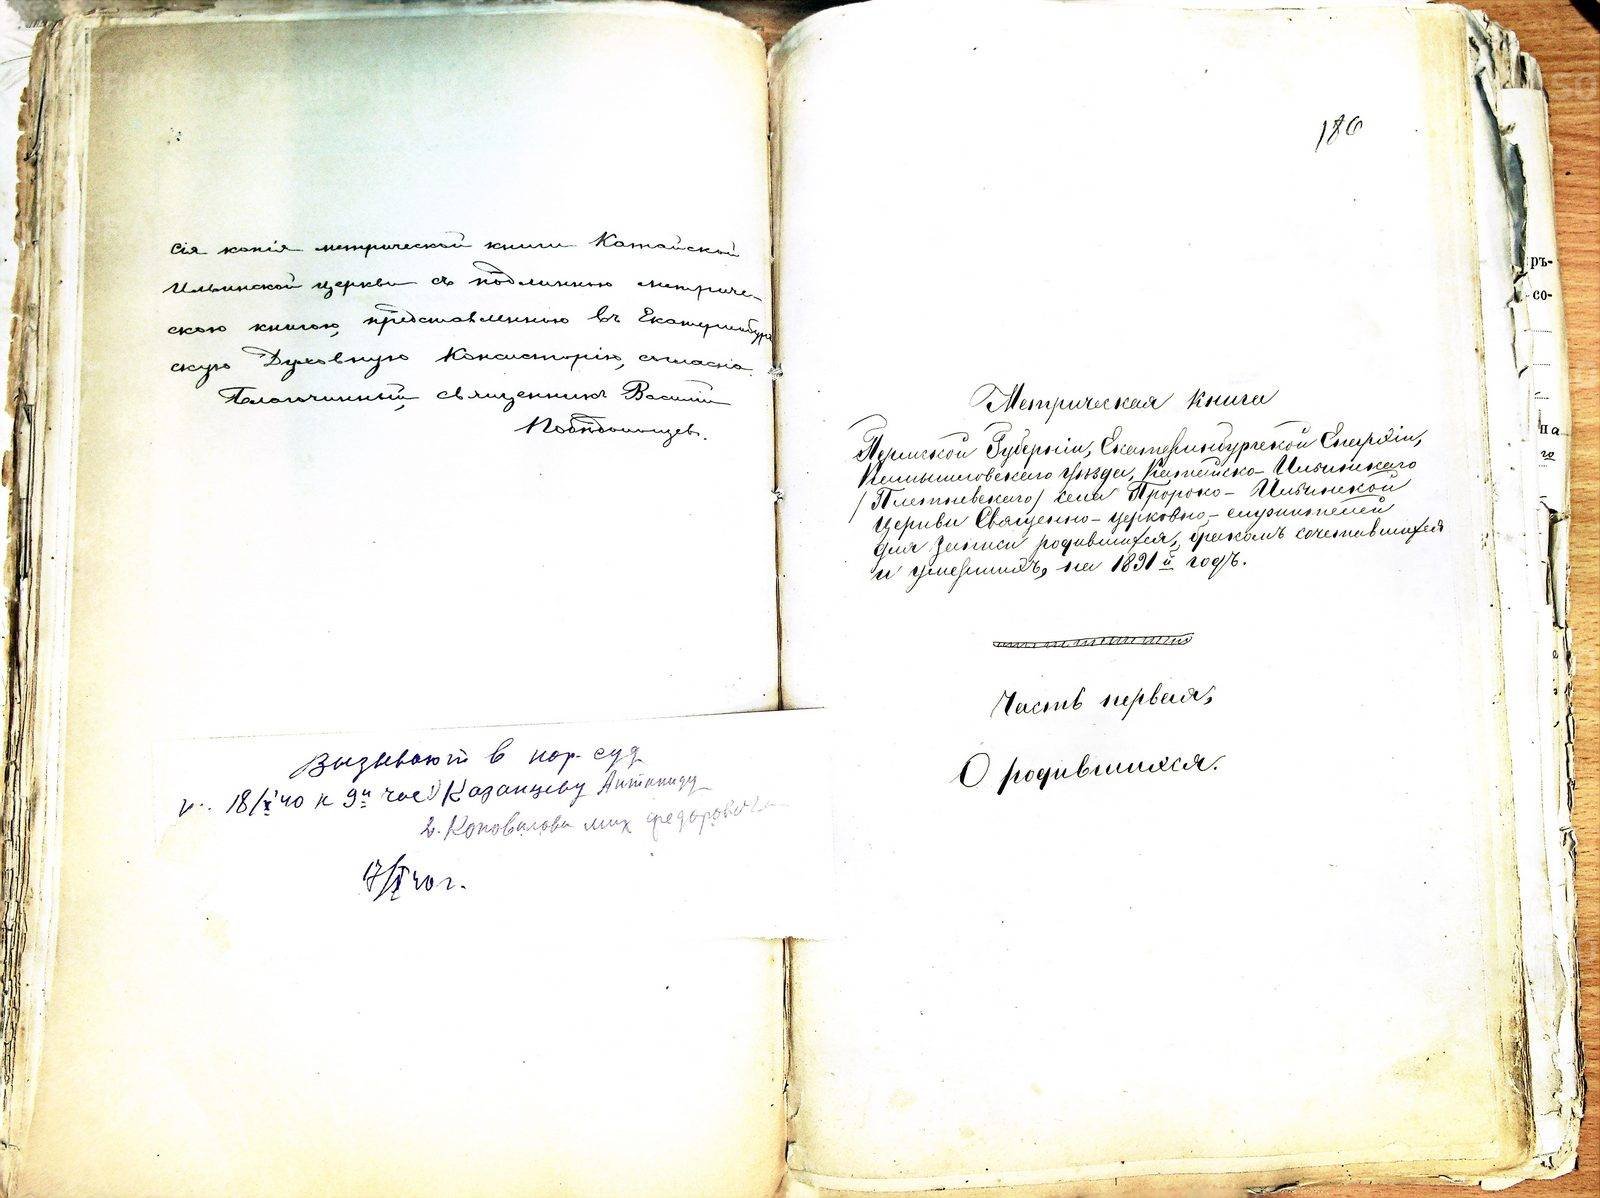 сія копія метрической книги Катайской
Ильинской церкви съ подлинною метриче-
скою книгою, представленною въ Екатеринбург
скую Духовную Консисторію, согласна.
Благочинный, священникъ Василій
Победоносцевъ.
Вызывают в нар. суд
18/X 40 к 9 ч час 1) Казанцеву Антониду
2. Коновалова Мих Федоровича
17/X 40 г.
186
Метрическая книга
Пермской Губерніи, Екатеринбургской Епархіи,
Камышловскаго уѣзда, Катайско-Ильинскаго
/Плетневскаго/ села Пророко-Ильинской
церкви Священно-церковно-служителей
для записи родившихся, бракомъ сочетавшихся
и умершихъ, на 1891й годъ.
Часть первая,
О родившихся.
ръ-
со-
на
го